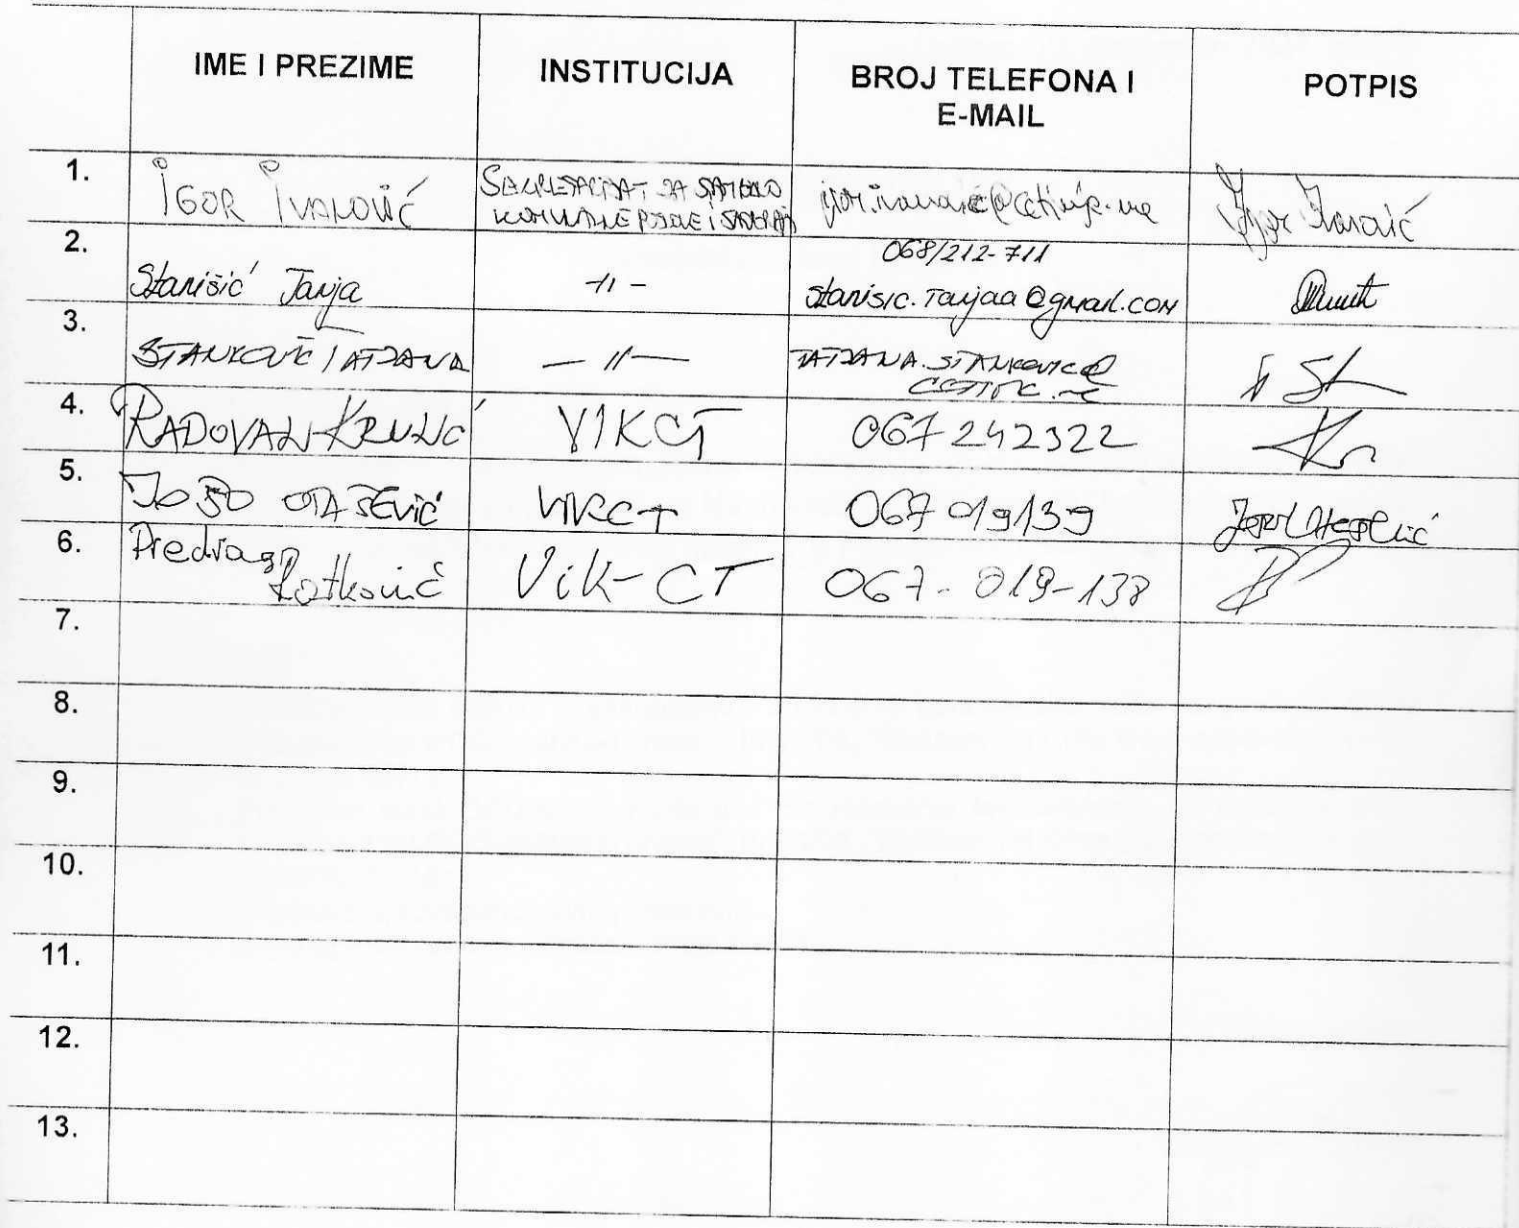 IME I PREZIME
INSTITUCIJA
BROJ TELEFONA I
E-MAIL
POTPIS
1.
IGOR IVANOVIĆ
ZA
KOMUNALNE POSLOVE I SAOBRAĆAJ
igor.ivanovic@cetinje.me
Igor Ivanović
2.
Stanišić Tanja
-11-
068/212-711
stanisic.Tanjaa@gmail.com
3.
STANKOVIĆ TATJANA
- 11 -
TATJANA.STANKOVIC@
4.
RADOVAN KRULIĆ
VIKCT
067 242322
5.
JOŠO OTAŠEVIĆ
VIKCT
067 019139
6.
Predrag
Ratković
ViK-CT
067-019-138
7.
8.
9.
10.
11.
12.
13.